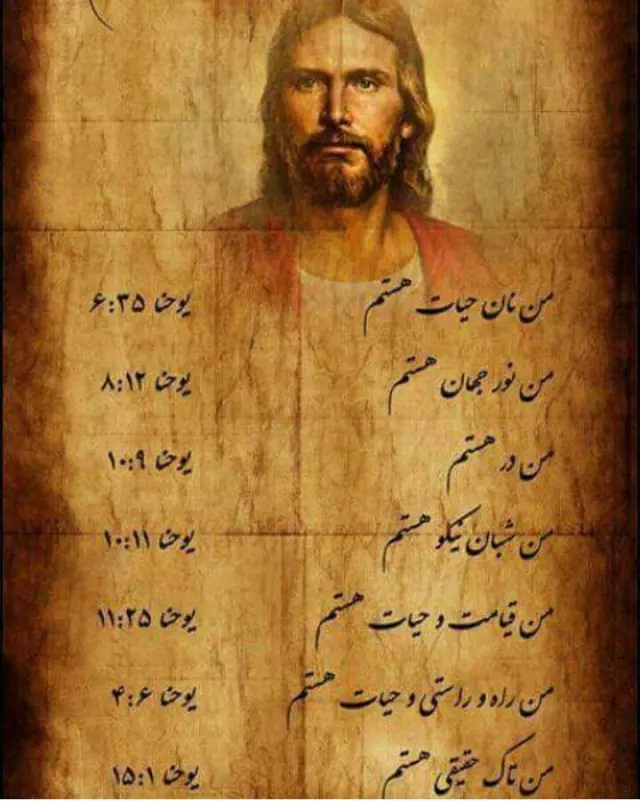 من نان حیات هستم یوحنا ۶:۳۵
من نور جهان هستم یوحنا ۸:۱۲
من در هستم یوحنا ۱۰:۹
من شبان نیکو هستم یوحنا ۱۰:۱۱
من قیامت و حیات هستم یوحنا ۱۱:۲۵
من راه و راستی و حیات هستم یوحنا ۴:۶
من تاک حقیقی هستم یوحنا ۱۵:۱